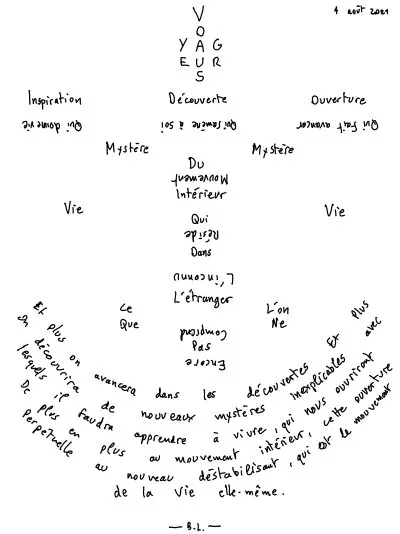 4 août 2021
V
O
Y A G
E U R
S
Inspiration Découverte Ouverture
Qui donne vie Qui ramène à soi Qui fait avancer
Mystère Mystère
Du
Mouvement
Intérieur
Vie Vie
Qui
Réside
Dans
L'inconnu
L'étranger
Ce L'on
Que Ne
Comprend
Pas
Encore
Et plus on avancera dans les découvertes Et plus
on découvrira de nouveaux mystères inexplicables avec
lesquels il faudra apprendre à vivre, qui nous ouvriront
De plus en plus au mouvement intérieur, cette ouverture
perpetuelle au nouveau déstabilisant, qui est le mouvement
de la vie elle-même.